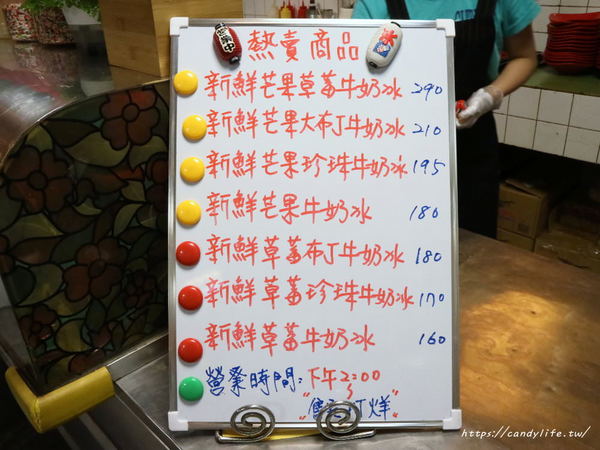 熱賣商品
新鮮芒果草莓牛奶冰 290
新鮮芒果大布丁牛奶冰 210
新鮮芒果珍珠牛奶冰 195
新鮮芒果牛奶冰 180
新鮮草莓布丁牛奶冰 180
新鮮草莓珍珠牛奶冰 170
新鮮草莓牛奶冰 160
營業時間:下午2:00
"售 打烊"
https://candylife.tw/